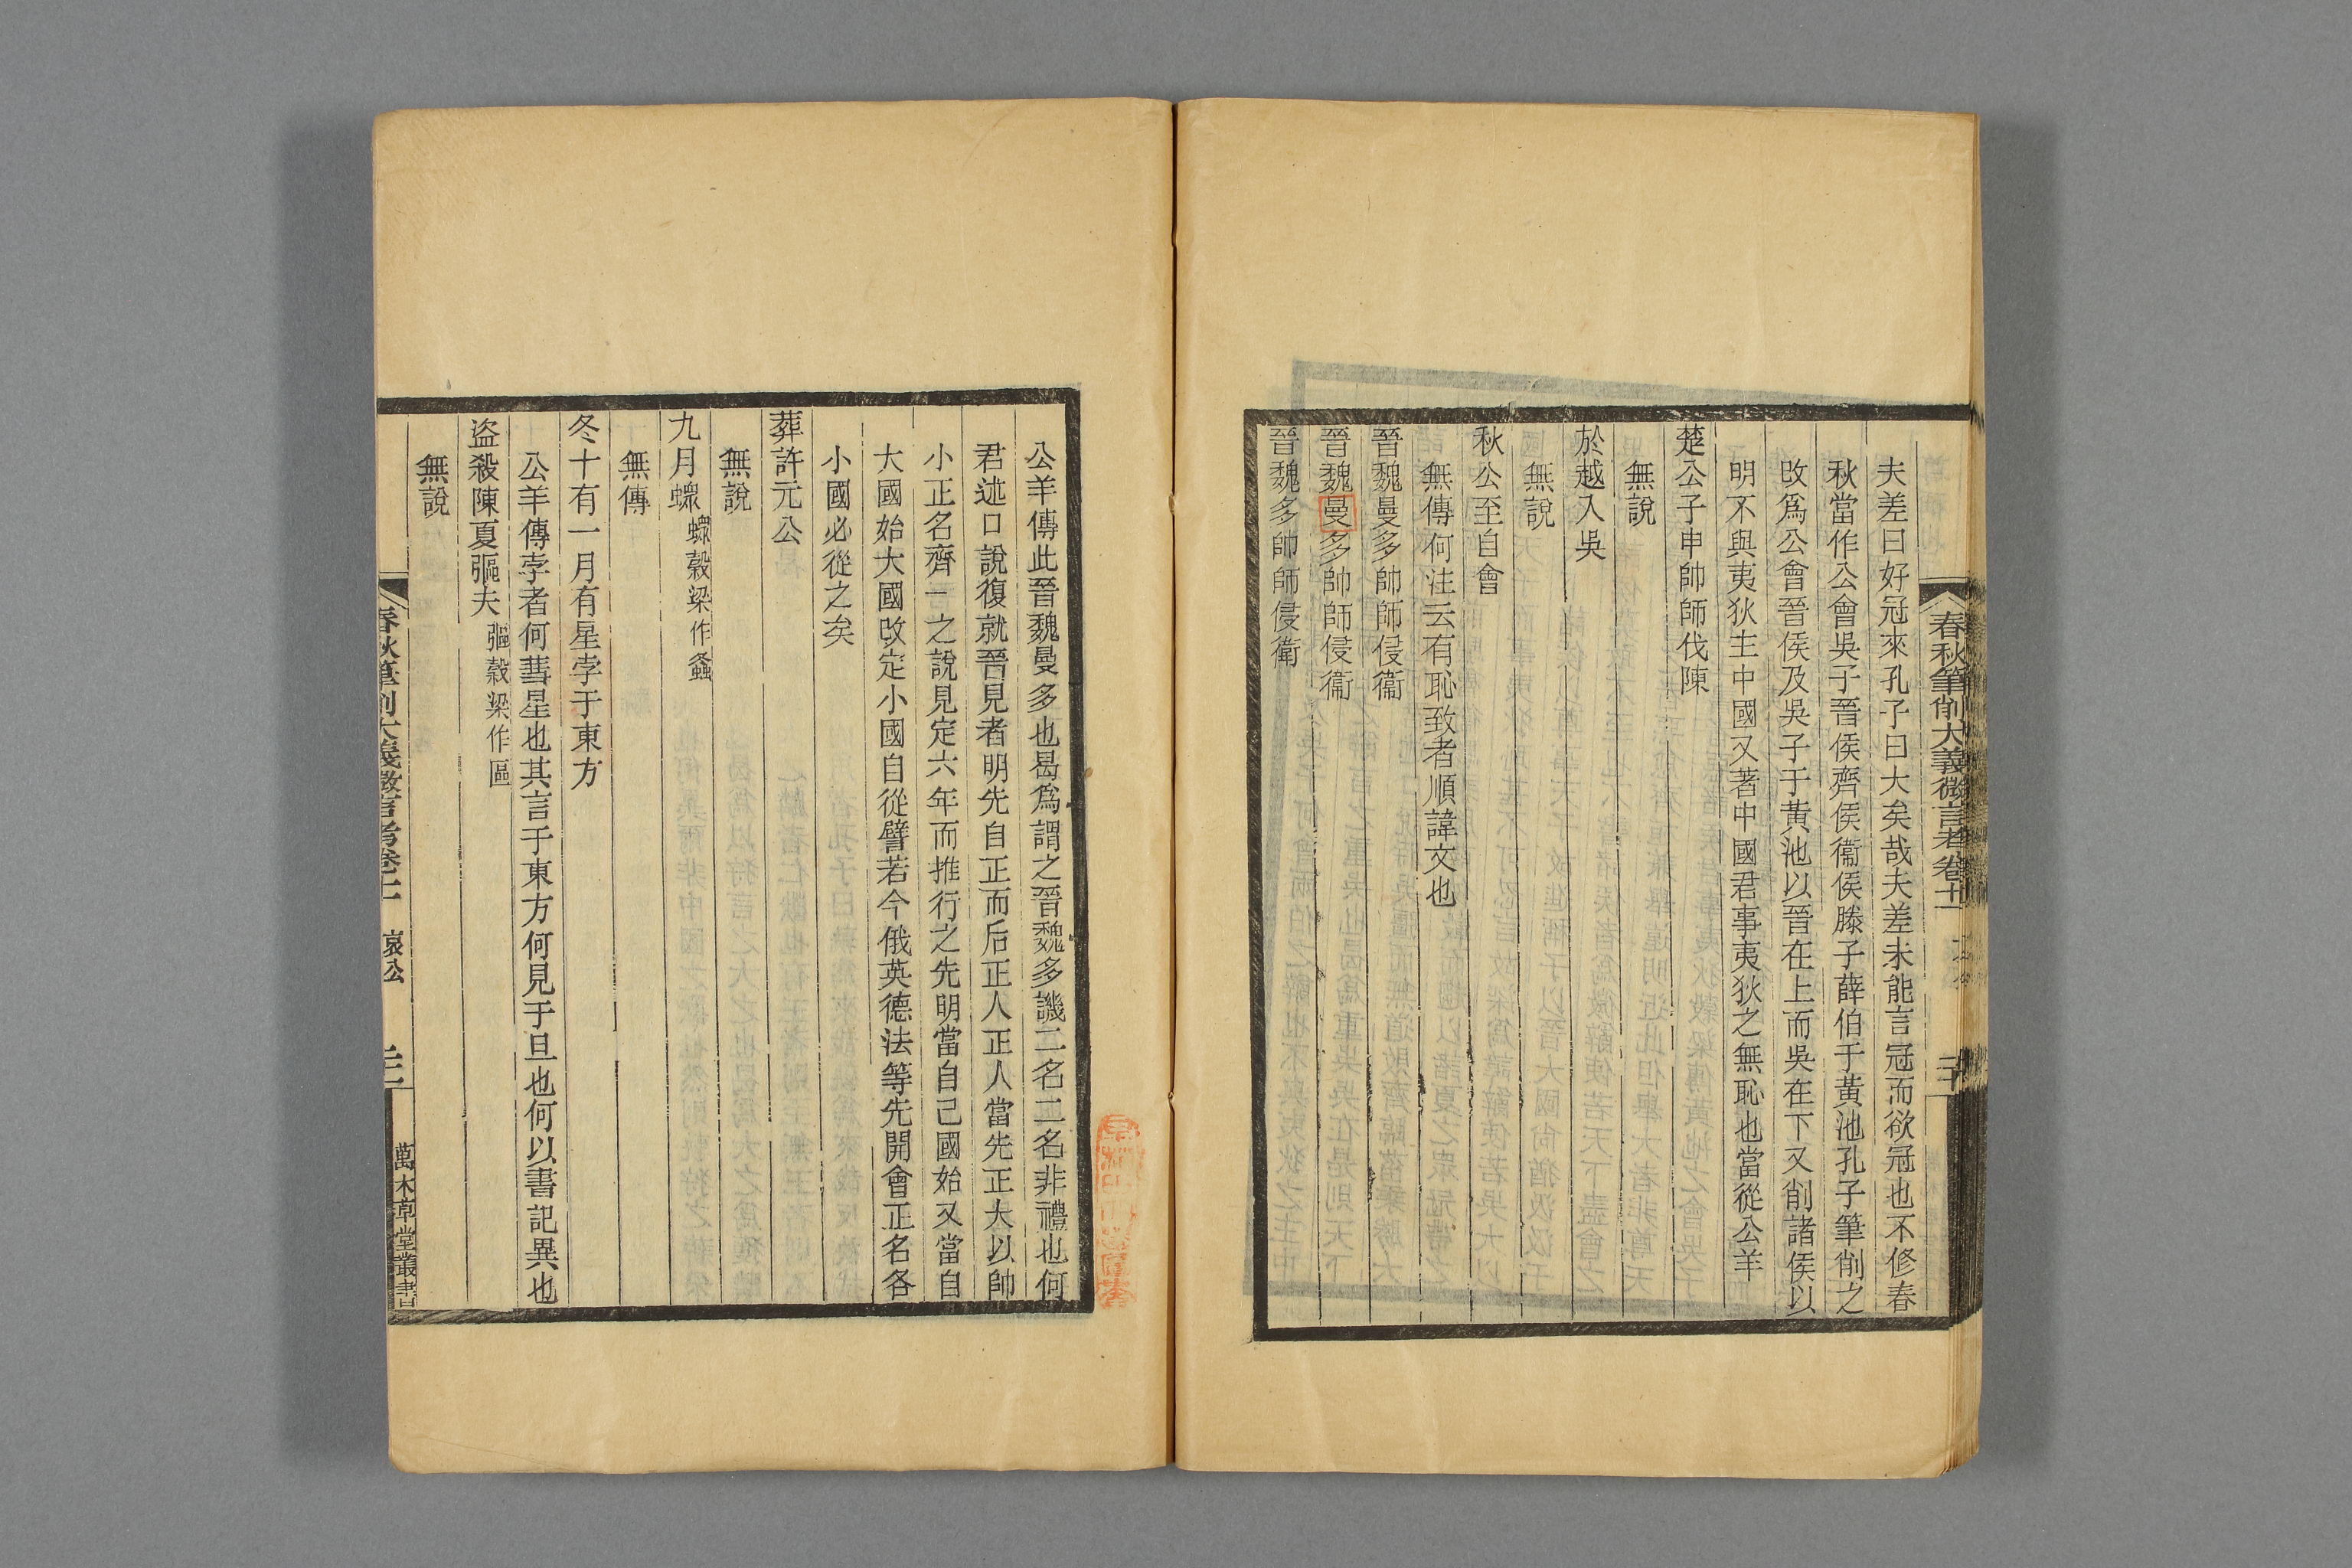 春秋筆削大義微言考卷十一
夫差曰好冠來孔子曰大矣哉夫差未能言冠而欲冠也不修春
秋當作公會吳子晉侯齊侯衞侯滕子薛伯于黃池孔子筆削之
改爲公會晉侯及吳子于黃池以晉在上而吳在下又削諸侯以
明不與夷狄主中國又著中國君事夷狄之無恥也當從公羊
楚公子申帥師伐陳
無說
於越入吳
無說
秋公至自會
無傳何注云有恥致者順諱文也
晉魏曼多帥師侵衞
晉魏曼多帥師侵衞
晉魏多帥師侵衞
公羊傳此晉魏曼多也曷爲謂之晉魏多譏二名二名非禮也何
君述口說復就晉見者明先自正而后正人正人當先正大以帥
小正名齊一之說見定六年而推行之先明當自己國始又當自
大國始大國改定小國自從譬若今俄英德法等先開會正名各
小國必從之矣
葬許元公
無說
九月螺 螺穀梁作螽
無傳
冬十有一月有星孛于東方
公羊傳孛者何彗星也其言于東方何見于旦也何以書記異也
盜殺陳夏彄夫 彄穀梁作區
無說
春秋筆削大義微言考卷十一 哀公
萬木草堂叢書